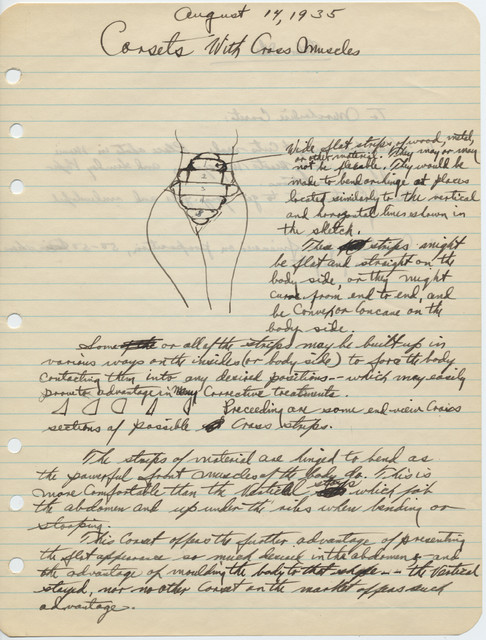 August 14, 1935
Corsets With Cross Muscles
Wide flat strips of wood, metal,
or other material. They may or may
not be flexible. They would be
made to bend or hinge at places
located similarly to the vertical
and horizontal lines shown in
the sketch.
The strips might
be flat and straight on the
body side, or they might
curve from end to end, and
be convex or concave on the
body side.
Some or all of the strips may be built up in
various ways on the insides (or body side) to force the body
contacting them into any desired positions -- which may easily
promote advantage in many corrective treatments.
Preceeding are some end-view cross
sections of possible cross strips.
The strips of material are hinged to bend as
the powerful front muscles of the body do. This is
more comfortable than the vertical strips which jab
the abdomen and up under the ribs when bending or
stooping.
This corset offers the further advantage of presenting
the flat appearance so much desired in the abdomen & and
the advantage of moulding the body to that shape -- the vertical
stayed, nor no other corset on the market offers such
advantage.